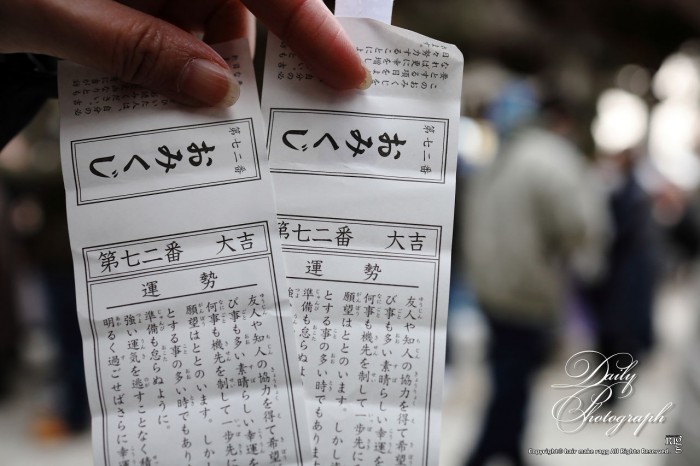 第七二番
おみくじ
第七二番 大吉
運勢
友人や知人の協力を得て希望
び事も多い素晴らしい幸運
何事も機先を制して一歩先に
願望はととのいます。しかし
とする事の多い時でもあり
準備も怠らぬように。
強い運気を逃すことなく積
明るく過ごせばさらに幸運
このおみくじを
要とする項目を
なれば更に幸を増し
日々努力することによ
第七二番
おみくじ
第七二番 大吉
運勢
友人や知人の協力を得て希望
び事も多い素晴らしい幸運
何事も機先を制して一歩先に
願望はととのいます。しか
とする事の多い時でもありま
準備も怠らぬ
Daily
Photograph
rag
Copyright© hair make ragg All Rights Reserved.